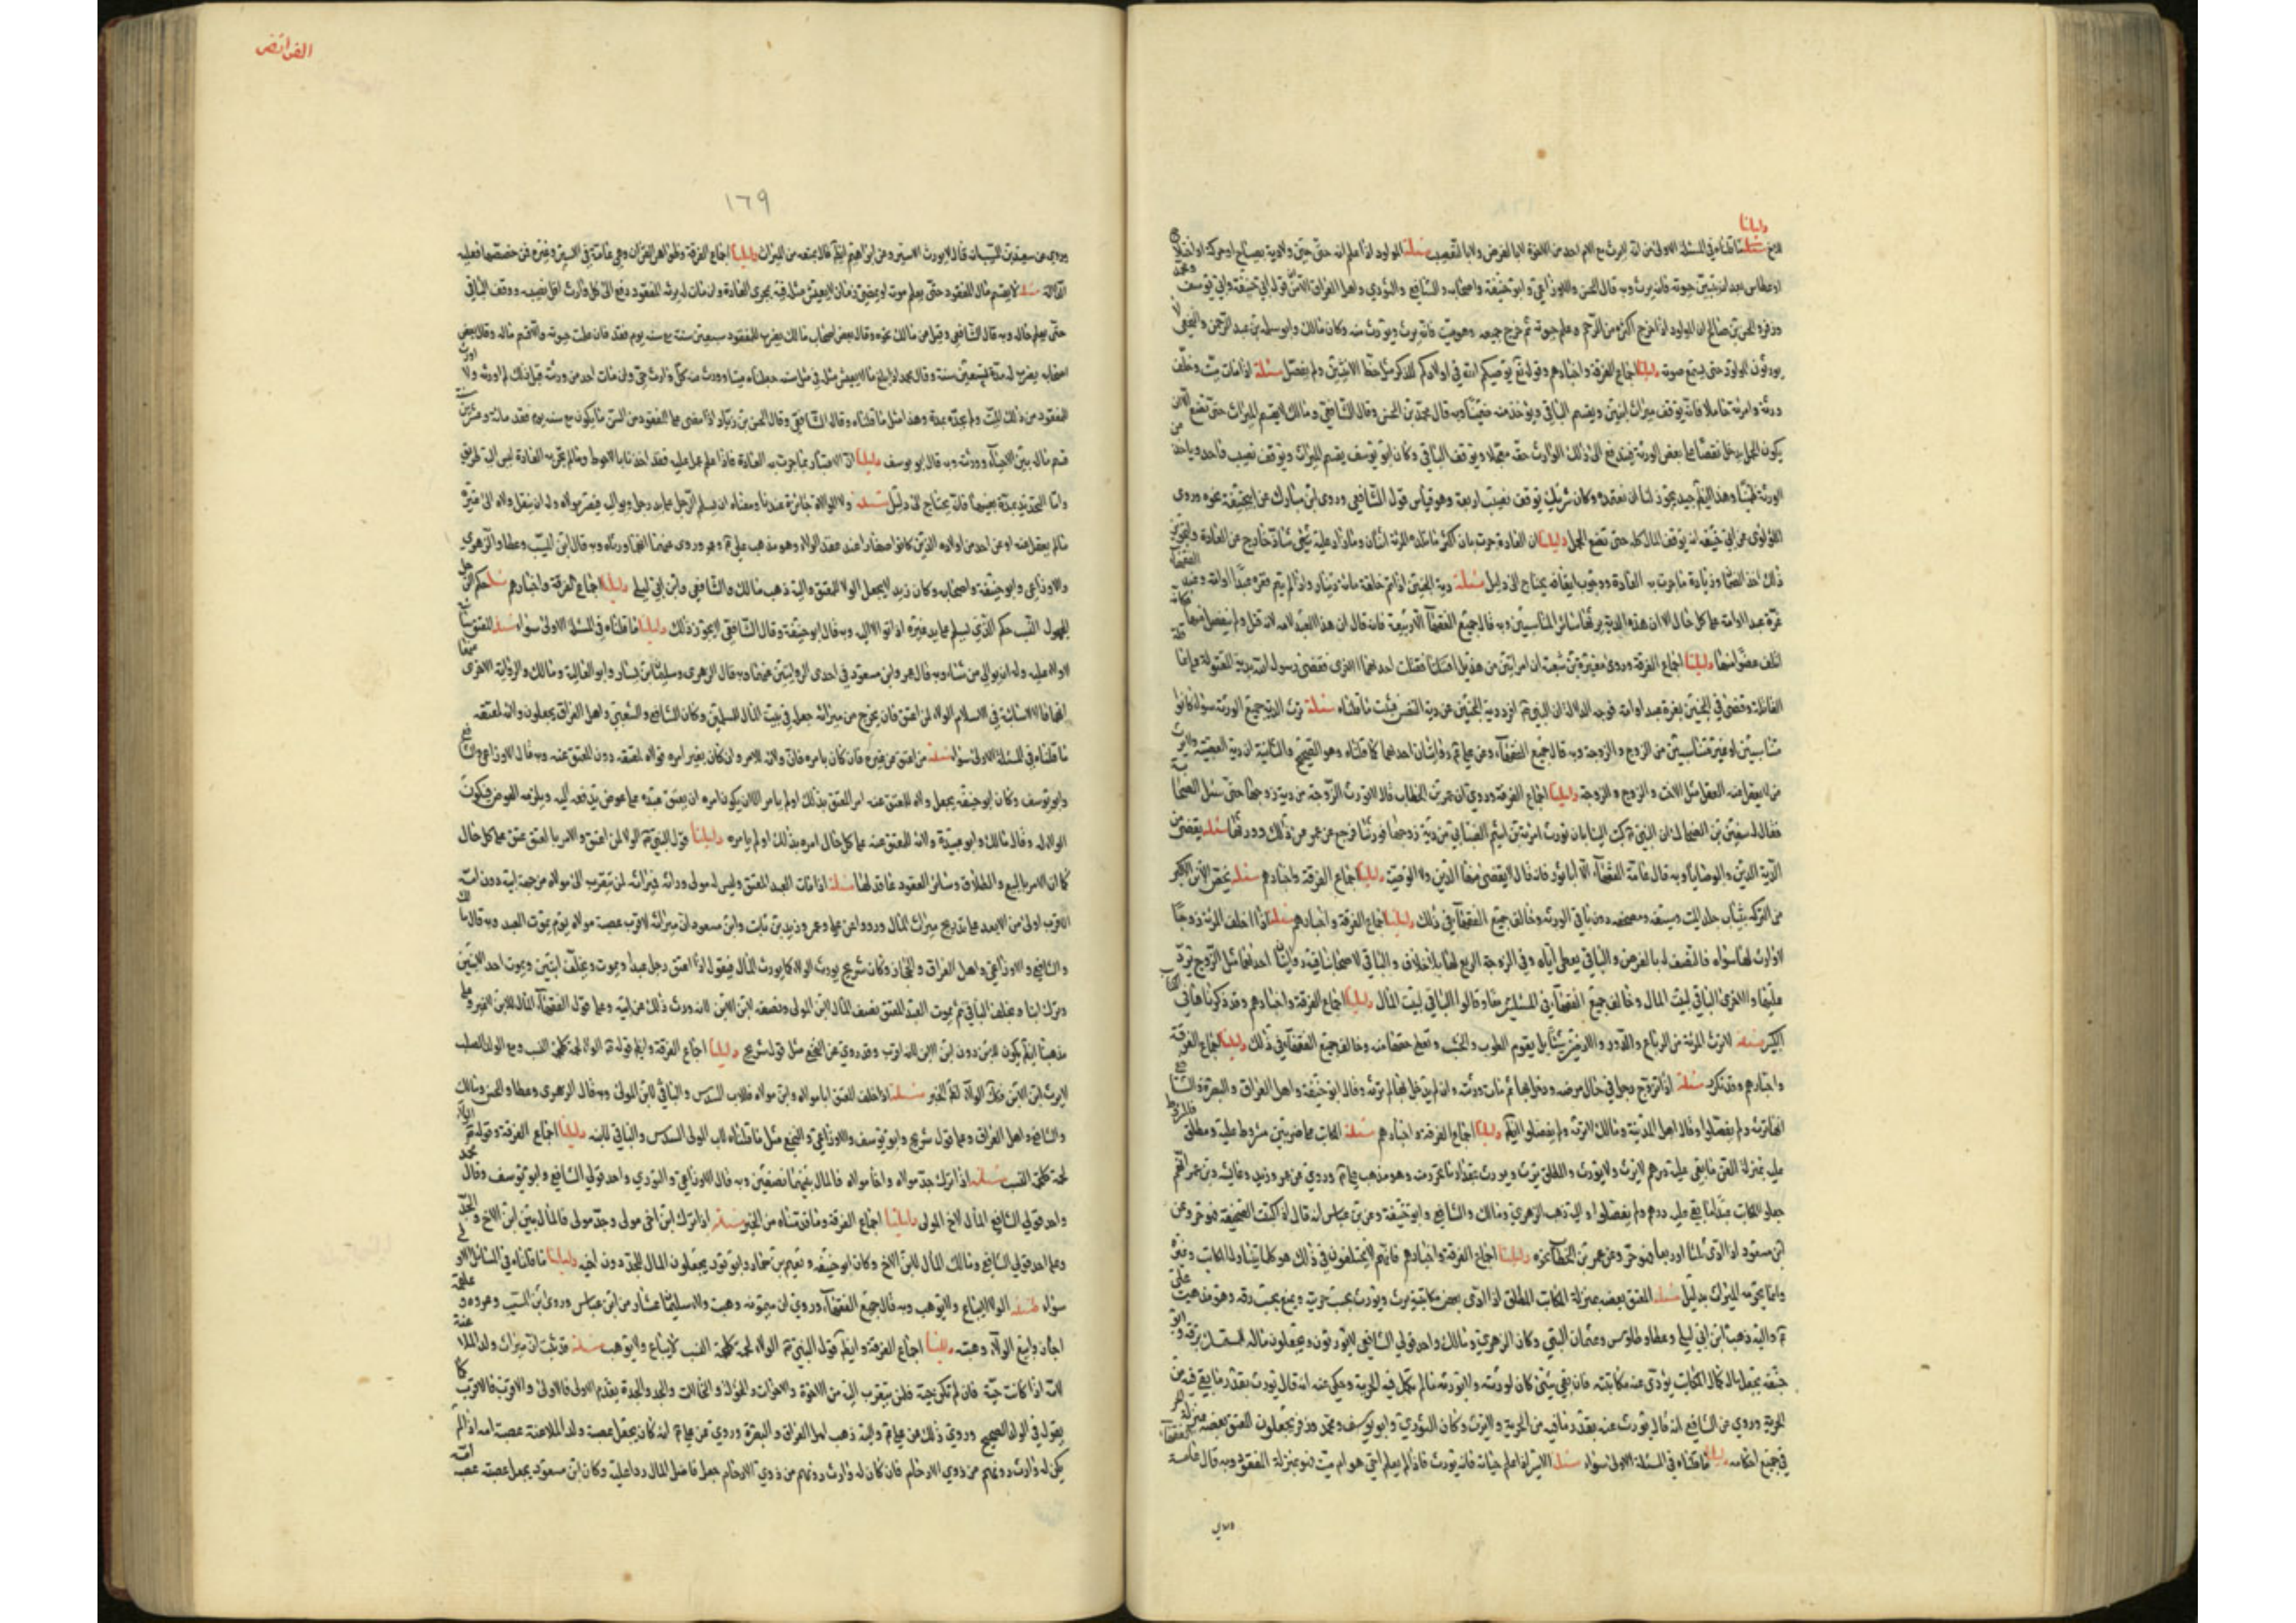 دليلنا
ما قلناه في المسئلة الاولى من انه لا يرث مع الام احد من الاخوة لا بالفرض ولا بالتعصيب مسئلة المولود اذا علم انه حي حين ولادته بصياح او حركة او اختلاج
او عطاس بعد ان تبين حيوته فانه يرث وبه قال الحسن والاوزاعي وابو حنيفة واصحابه والشافعي والثوري واهل العراق الا ان قول ابي حنيفة وابي يوسف ومحمد
وزفر والحسن بن صالح ان المولود اذا خرج اكثره من الرحم وعلم حيوته ثم خرج جميعه وهو ميت فانه يرث ويورث منه وكان مالك وابو سلمة بن عبد الرحمن والنخعي لا
يورثون المولود حتى يسمع صوته دليلنا اجماع الفرقة واخبارهم وقوله تع يوصيكم الله في اولادكم للذكر مثل حظ الانثيين ولم يفصل مسئلة اذا مات ميت وخلف
ورثة وامرءة حاملا فانه يوقف ميراث ابنين ويقسم الباقي ويؤخذ منه ضمناء وبه قال محمد بن الحسن وقال الشافعي ومالك لا يقسم الميراث حتى تضع الا ان
يكون الحمل يدخل نقصا على بعض الورثة فيدفع الى ذلك الوارث حقه معجلا ويوقف الباقي وكان ابو يوسف يقسم الميراث ويوقف نصيب واحد وياخذ من
الورثة ضمناء وهذا ايضا جيد يجوز لنا ان نعتمده وكان شريك يوقف نصيب اربعة وهو قياس قول الشافعي وروى ابن مبارك عن ابي حنيفة نحوه وروى
اللؤلؤي عن ابي حنيفة انه يوقف المال كله حتى تضع الحمل دليلنا ان العادة جرت بان اكثر ما تلده المرئة اثنان وما زاد عليه شئ شاذ خارج عن العادة
ذلك اخذ الضمناء وزيادة ما جرت به العادة ووجوب ايقافه يحتاج الى دليل مسئلة دية الجنين اذا تم خلقه مائة دينار واذا لم يتم فغرة عبد او امة وعند الفقهاء
غرة عبد او امة على كل حال الا ان هذه الدية يرثها سائر المناسبين وبه قال جميع الفقهاء الا ربيعة فانه قال ان هذا العبد لامه لانه قتل ولم ينفصل منها
اتلف عضوا منها دليلنا اجماع الفرقة وروى مغيرة بن شعبة ان امرتين من هذيل اقتتلتا فقتلت احدهما الاخرى فقضى رسول الله بدية المقتولة على عاقلة
القاتلة وقضى في الجنين بغرة عبد او امة فوجه الدلالة ان النبي افرد دية الجنين عن دية النفس فثبت ما قلناه مسئلة يرث الدية جميع الورثة سواء كانوا
مناسبين او غير مناسبين من الزوج والزوجة وبه قال جميع الفقهاء وعن علي روايتان احدهما كما قلناه وهو الصحيح والثانية ان دية العصبة ولا يرث
من لا يعقل عنه العقل مثل الاخت والزوج والزوجة دليلنا اجماع الفرقة وروي ان عمر بن الخطاب قال لا تورث الزوجة من دية زوجها حتى سئل الصحابة
فقال له سفين بن الضحاك ان النبي كتب الينا بان نورث امرئة بن اشيم الضبابي من دية زوجها فورثنا فرجع عمر عن ذلك وورثها مسئلة يقضى من
الدية الدين والوصايا وبه قال عامة الفقهاء الا ابا ثور فانه قال لا يقضى منها الدين ولا الوصية دليلنا اجماع الفرقة واخبارهم مسئلة يخص الابن الاكبر
من التركة بثياب جلد الميت وسيفه ومصحفه دون باقي الورثة وخالف جميع الفقهاء في ذلك دليلنا اجماع الفرقة واخبارهم مسئلة اذا خلفت المرئة زوجا
لا وارث لها سواه فالنصف له بالفرض والباقي يعطى اياه وفي الزوجة الربع لها بلا خلاف والباقي لاصحابنا فيه روايتان احدهما مثل الزوج يرد
عليها والاخرى الباقي لبيت المال وخالف جميع الفقهاء في المسئلتين معا وقالوا الباقي لبيت المال دليلنا اجماع الفرقة واخبارهم وقد ذكرناها في الكتاب
الكبير مسئلة لا ترث المرئة من الرباع والدور والارضين شيئا بل يقوم الطوب والخشب وتعطى حقها منه وخالف جميع الفقهاء في ذلك دليلنا اجماع الفرقة
واخبارهم وقد ذكرت مسئلة اذا تزوج رجل في حال مرضه ودخل بها ثم مات ورثته وان لم يدخل بها لم ترثه وقال ابو حنيفة واهل العراق والبصرة والشافعي
انها ترث ولم يفصلوا وقال اهل المدينة ومالك لا ترثه ولم يفصلوا ايضا دليلنا اجماع الفرقة واخبارهم مسئلة المكاتب على ضربين مشروط عليه ومطلق فالمشروط
عليه بمنزلة القن ما بقي عليه درهم لا يرث ولا يورث والمطلق يرث ويورث بمقدار ما تحرر منه وهو مذهب علي وروي عن عمر وزيد وعائشة وبن عمر انهم
جعلوا المكاتب عبدا ما بقي عليه درهم ولم يفصلوا واليه ذهب الزهري ومالك والشافعي وابو حنيفة وعن بن عباس انه قال اذا كتبت الصحيفة فهو حر وعن
ابن مسعود اذا ادى ثلثا او ربعا فهو حر وعن عمر بن الخطاب نحوه دليلنا اجماع الفرقة واخبارهم فانهم لا يختلفون في ذلك
وانما يحرمه الميراث بدليل مسئلة المعتق بعضه بمنزلة المكاتب المطلق اذا ادى بعض مكاتبته يرث ويورث بحسب حريته ويمنع بحسب رقه وهو مذهب علي
واليه ذهب ابن ابي ليلى وعطاء وطاوس وعثمان البتي وكان الزهري ومالك واحد قولي الشافعي لا يورثون ويجعلون ماله للمتمسك برقه وابو
حنيفة يجعل ماله كمال المكاتب يؤدى عنه مكاتبته فان بقي شئ كان لورثته ولا يورثه ما لم يكمل فيه الحرية وحكي عنه انه قال يورث بقدر ما بقي فيه من
الحرية وروي عن الشافعي انه قال يورث عنه بقدر ما فيه من الحرية ولا يرث وكان الثوري وابو يوسف ومحمد وزفر يجعلون المعتق بعضه بمنزلة الحر
في جميع احكامه دليلنا ما قلناه في المسئلة الاولى سواء مسئلة الاسير اذا علم حياته فانه يورث فاذا لم يعلم احي هو ام ميت فهو بمنزلة المفقود وبه قال عامة الفقهاء
وروي
الفرائض
١٦٩
وروي عن سعيد بن المسيب انه قال لا يورث الاسير وعن ابراهيم ايضا قال يمنعه من الميراث دليلنا اجماع الفرقة وظواهر القران وهي عامة في الاسير وغيره فمن خصصها فعليه
الدلالة مسئلة لا يقسم مال المفقود حتى يعلم موته او يمضي زمان لا يعيش مثله فيه بمجرى العادة وان مات له من يرثه المفقود دفع الى كل وارث اقل نصيبه ووقف الباقي
حتى يعلم حاله وبه قال الشافعي وقيل عن مالك نحوه وقال بعض اصحاب مالك يضرب للمفقود سبعين سنة مع سنه يوم فقد فان علمت حيوته والا قسم ماله وقال بعض
اصحابه يضرب له مدة تسعين سنة وقال محمد اذا بلغ ما لا يعيش مثله في مثل سنه جعلناه ميتا وورث منه كل وارث حي وان مات احد من ورثته قبل ذلك لم اورثه ولا اورث
المفقود من ذلك الميت ولم يحده بمدة وهذا مثل ما قلناه وقاله الشافعي وقال الحسن بن زياد اذا مضى على المفقود من السن ما يكون مع سنه يوم فقد مائة وعشرين سنة
قسم ماله بين الاحياء وورثته وبه قال ابو يوسف دليلنا ان الاعتبار بما جرت به العادة فاذا علم عمل عليه فقد اخذنا بالاحوط وما لم تجر به العادة ليس اليه طريق
واما التحديد بمدة بعينها فانه يحتاج الى دليل مسئلة ولاء الموالاة جائزة عندنا ومعناه ان يسلم الرجل على يد رجل ويواليه فيصير مولاه وله ان ينقل ولاءه الى غيره
ما لم يعقل عنه او عن احد من اولاده الذين كانوا صغارا عند عقد الولاء وهو مذهب علي وعمر وروي عنهما انهما ورثا به وبه قال ابن المسيب وعطاء والزهري
والاوزاعي وابو حنيفة واصحابه وكان زيد لا يجعل الولاء الا للمعتق واليه ذهب مالك والشافعي وابن ابي ليلى دليلنا اجماع الفرقة واخبارهم مسئلة حكم الرجل
المجهول النسب حكم الذي يسلم على يد غيره اذا توالى اليه وبه قال ابو حنيفة وقال الشافعي لا يجوز ذلك دليلنا ما قلناه في المسئلة الاولى سواء مسئلة المعتق سائبة
لا ولاء عليه وله ان يوالي من شاء وبه قال عمر وابن مسعود في احدى الروايتين عنهما وبه قال الزهري وسليمان بن يسار وابو العالية ومالك والرواية الاخرى
انهما قالا لا سائبة في الاسلام الولاء لمن اعتق فان تحرج من ميراثه جعل في بيت المال للمسلمين وكان الشافعي والشعبي واهل العراق يجعلون ولاءه لمعتقه
ما قلناه في المسئلة الاولى سواء مسئلة من اعتق عن غيره فان كان بامره فان ولاءه للامر وان كان بغير امره فولاءه لمعتقه دون المعتق عنه وبه قال الاوزاعي والشافعي
وابو يوسف وكان ابو حنيفة يجعل ولاءه للمعتق عنه امر المعتق بذلك او لم يامر الا ان يكون امره ان يعتق عبده على عوض يدفعه اليه ويلزمه العوض فيكون
الولاء له وقال مالك وابو عبيدة ولاءه للمعتق عنه على كل حال امره بذلك او لم يامره دليلنا قول النبي الولاء لمن اعتق والامر بالعتق معتق على كل حال
كما ان الامر بالبيع والطلاق وسائر العقود عاقد لها مسئلة اذا مات العبد المعتق وليس له مولى وراثه فميراثه لمن يتقرب الى مولاه من جهة ابيه دون امه
الاقرب اولى من الابعد على تدريج ميراث المال ورووا عن علي وعمر وزيد بن ثابت وابن مسعود ان ميراثه لاقرب عصبة مولاه يوم يموت العبد وبه قال مالك
والشافعي والاوزاعي واهل العراق والحجاز وكان شريح يورث الولاء كما يورث المال فيقول اذا اعتق رجل عبدا ويموت ويخلف ابنين ويموت احد الابنين
وترك ابنا ويخلف الباقي ثم يموت العبد المعتق نصف المال لابن المولى ونصفه لابن الابن لانه ورث ذلك عن ابيه وعلى قول الفقهاء المال للابن
مذهبنا ايضا يكون للابن دون ابن الابن لانه اقرب وقد روي عن النخعي مثل قول شريح دليلنا اجماع الفرقة وايضا قوله الولاء لحمة كلحمة النسب ومع الولد للصلب
لا يرث ابن الابن فكذا الولاء لظاهر الخبر مسئلة اذا خلف المعتق ابا مولاه وابن مولاه فللاب السدس والباقي لابن المولى وبه قال الزهري وعطاء والحسن ومالك
والشافعي واهل العراق وعلى قول شريح وابو يوسف والاوزاعي والنخعي مثل ما قلناه لاب المولى السدس والباقي للابن دليلنا اجماع الفرقة وقوله الولاء
لحمة كلحمة النسب مسئلة اذا ترك جد مولاه واخا مولاه فالمال بينهما نصفين وبه قال الاوزاعي والثوري واحد قولي الشافعي وابو يوسف ومحمد وقال
واحد قولي الشافعي المال لاخ المولى دليلنا اجماع الفرقة وما قدمناه من الخبر مسئلة اذا ترك ابن اخي مولى وجد مولى فالمال بين ابن الاخ والجد
وعلى احد قولي الشافعي ومالك المال لابن الاخ وكان ابو حنيفة ونعيم بن حماد وابو ثور يجعلون المال للجد دون اخيه دليلنا ما قلناه في المسائل الاولى
سواء مسئلة الولاء لا يباع ولا يوهب وبه قال جميع الفقهاء وروي ان ميمونة وهبت ولاء سليمان بن يسار من ابن عباس وروى بن المسيب وعروة وعلقمة
اجازوا بيع الولاء وهبته دليلنا اجماع الفرقة وايضا قول النبي الولاء لحمة كلحمة النسب لا يباع ولا يوهب مسئلة قد بينا ان ميراث ولد الملاعنة
لامه اذا كانت حية فان لم تكن حية فلمن يتقرب اليه من الاخوة والاخوات والخؤلة والخالات والجد والجدة يقدم الاولى فالاولى والاقرب فالاقرب كما
يقول في الولد الصحيح وروي ذلك عن علي واليه ذهب اهل العراق والبصرة وروي عن علي انه كان يجعل عصبة ولد الملاعنة عصبة امه اذا لم
يكن له وارث ذو سهم من ذوي الارحام فان كان له وارث ذو سهم من ذوي الارحام جعل فاضل المال ردا عليه وكان ابن مسعود يجعل عصبته عصبة امه